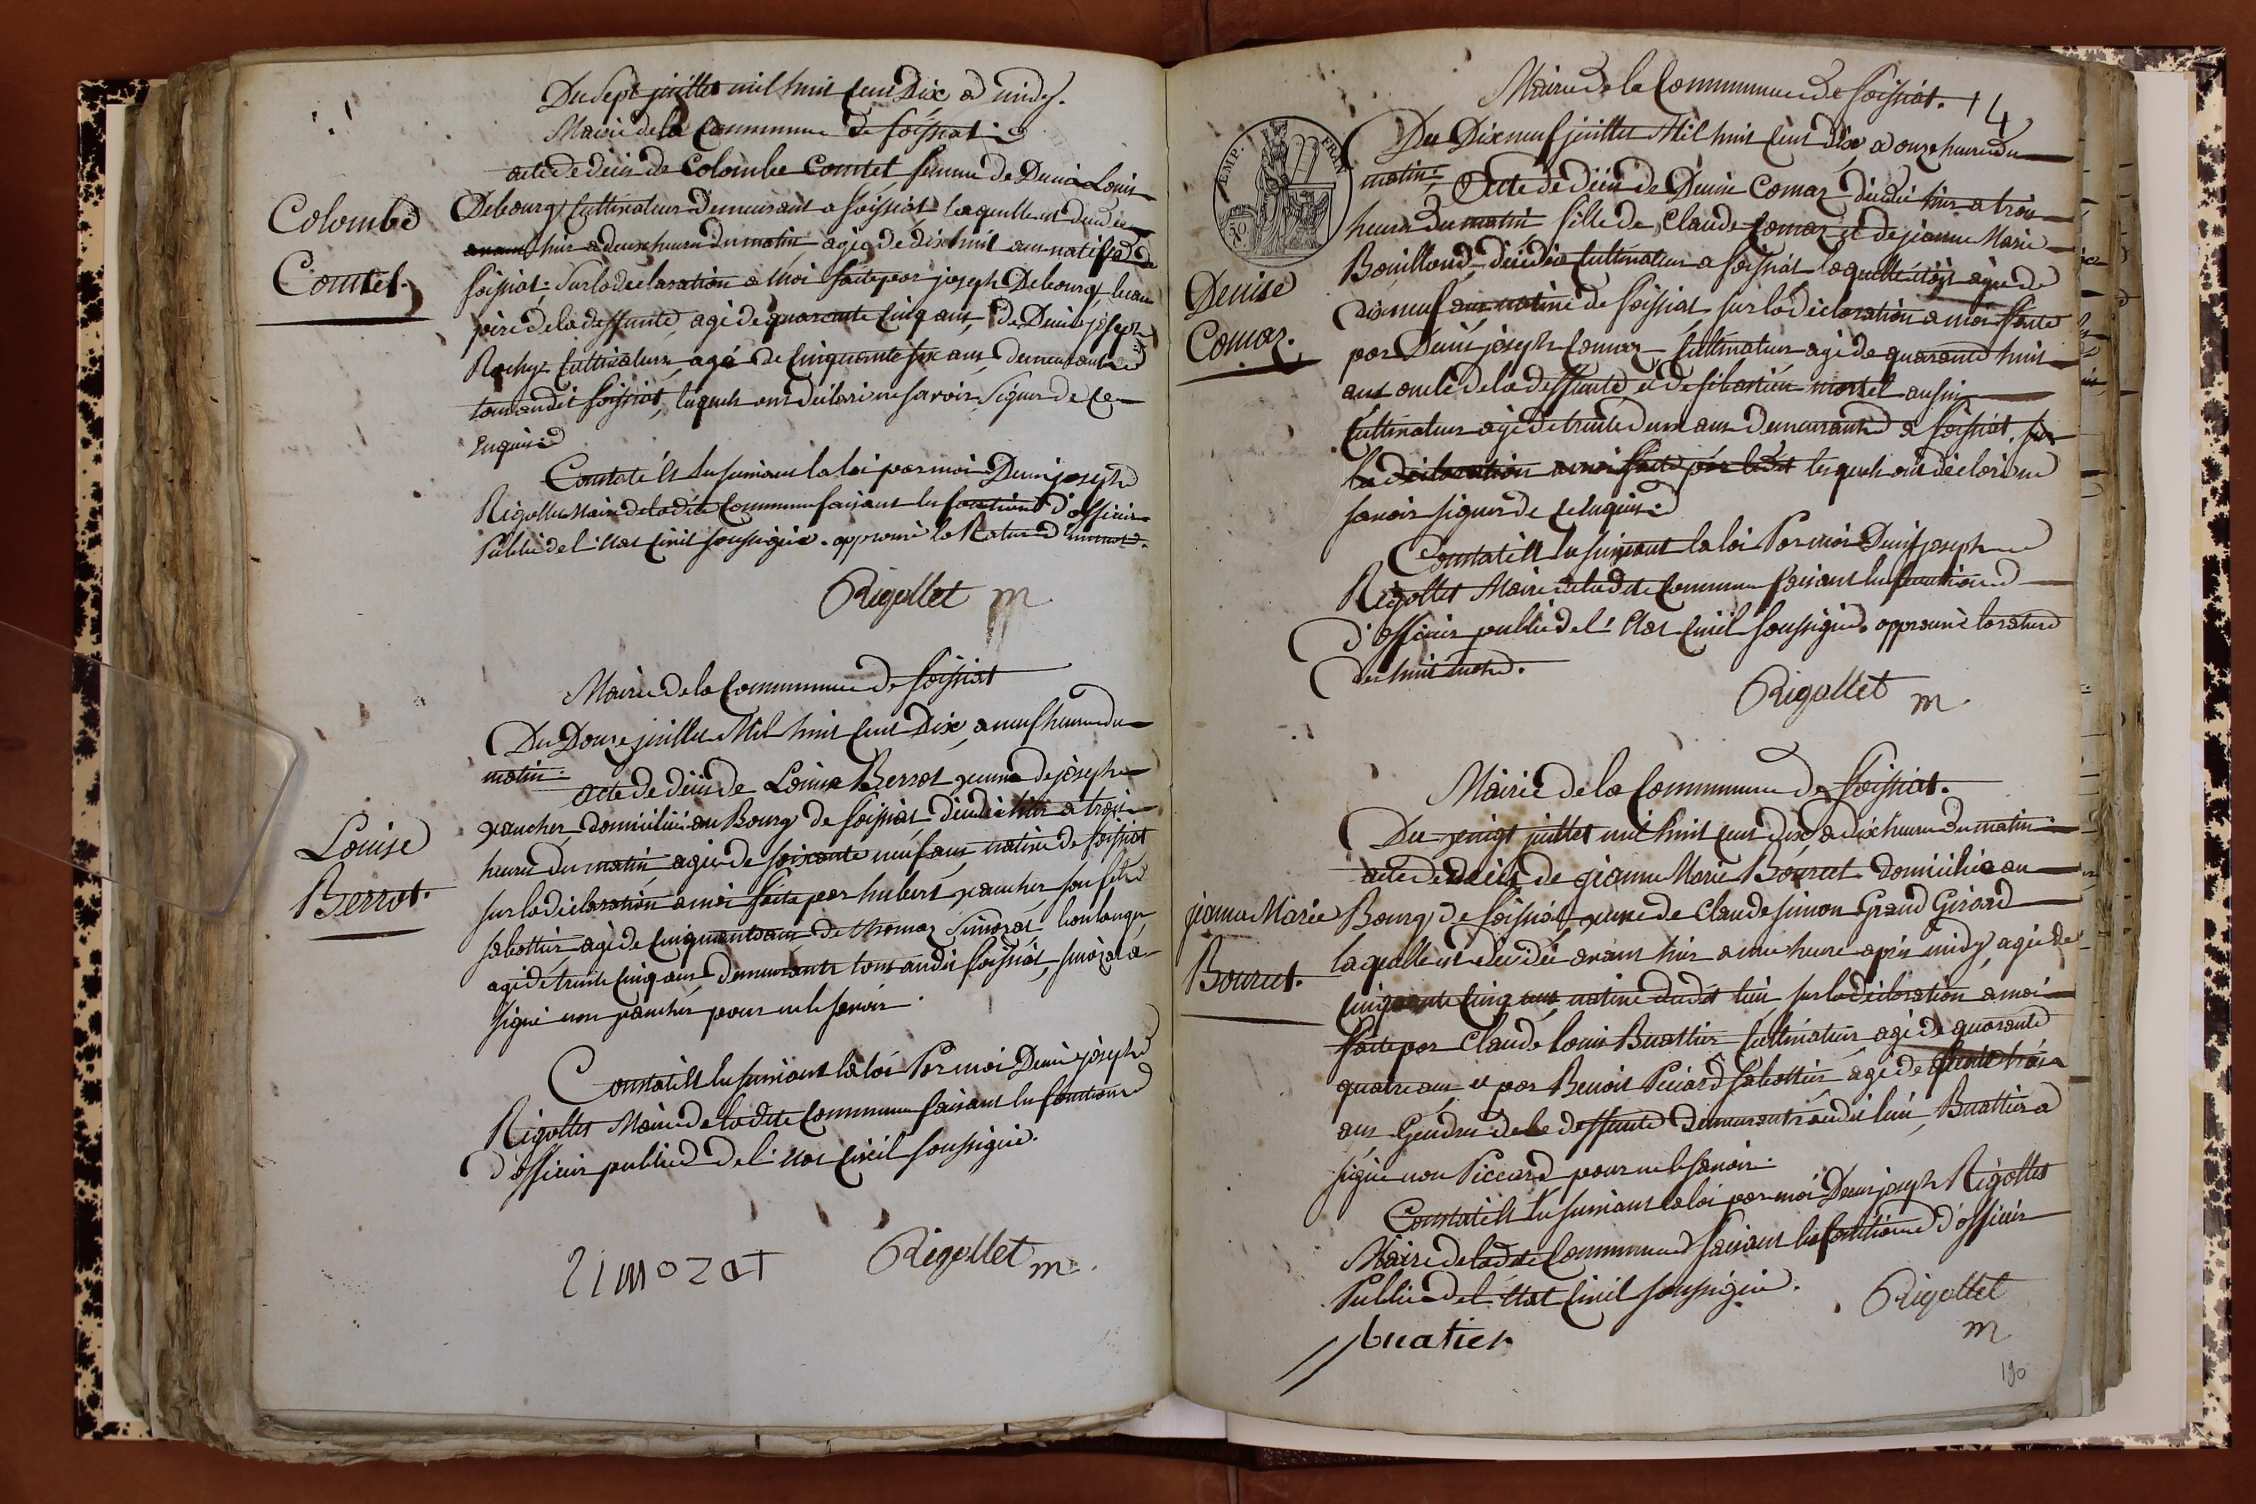 Du sept juillet mil huit cent dix a midy.
Mairie de la Commune de foissiat.
acte de décès de Colombe Comtet femme de Denis Louis
Colombe
Comtet.
Debourg Cultivateur demeurant a foissiat laquelle est décédée
avant hier a deux heures du matin agée de dix huit ans native de
foissiat. Sur la déclaration a Moi faite par joseph Debourg, beau
père de la deffunte, agé de quarante cinq ans, de Denis joseph
Rochy Cultivateur, agé de Cinquante six ans, demeurants
tous audit foissiat, lesquels ont déclaré ne savoir signer de ce
Enquis.
Constaté les du suivant la loi par moi Denis joseph
Rigollet Maire de la dite Commune faisant les fonctions d'officier
Public de l'état Civil soussigné. approuvé la Rature d'un mot.
Rigollet m
Mairie de la Commune de foissiat
Du Douze juillet Mil huit Cent Dix, a neuf heures du
matin.
acte de décès de Louise Berrot veuve de joseph
Louise
Berrot.
vaucher, domiciliée au Bourg de foissiat décédée hier a trois
heures du matin agée de soixante neuf ans native de foissiat
sur la déclaration a moi faite par hubert vaucher son fils
sabottier, agé de Cinquante ans de thomas Simozat boulanger
agé de trente cinq ans, demeurants tous audit foissiat, simozat a
signé non vaucher pour ne le savoir.
Constaté les du suivant la loi Par moi Denis joseph
Rigollet Maire de la dite Commune faisant les fonctions
d'officier public de l'état Civil soussigné.
Simozat Rigollet m.
Mairie de la Commune de foissiat. 14
EMP. FRAN
50
Du Dix neuf juillet Mil huit Cent dix a onze heures du
matin.
Acte de décès de Denise Comaz décédée hier a trois
heures du matin fille de Claude Comaz et de jeanne Marie
Denise
Comaz.
Bouilloud, décédée Cultivateur a foissiat laquelle étoit agée de
dix neuf ans native de foissiat sur la déclaration a moi faite
par Denis joseph Comaz, Cultivateur agé de quarante huit
ans oncle de la deffunte et de sébastien mortel aussi
Cultivateur agé de trente deux ans demeurants a foissiat, sur
la déclaration a moi faite par ledit lesquels ont déclaré ne
savoir signer de ce enquis.
Constaté les du suivant la loi Par moi Denis joseph
Rigollet Maire de la dite Commune faisant les fonctions
d'officier public de l'état Civil soussigné. approuvé la rature
de huit mots.
Rigollet m.
Mairie de la Commune de foissiat.
Du vingt juillet mil huit cent dix, a dix heures du matin.
acte de décès de jeanne Marie Bourcet domiciliée au
jeanne Marie
Bourcet.
Bourg de foissiat, veuve de Claude simon Grand Girard
laquelle est décédée avant hier a une heure après midy, agée de
Cinquante Cinq ans native dudit lieu sur la déclaration a moi
faite par Claude Louis Buattier Cultivateur agé de quarante
quatre ans et par Benoit Piccard sabottier agé de trente trois
ans Gendre de la deffunte demeurants audit lieu, Buattier a
signé non Piccard pour ne le savoir.
Constaté les du suivant la loi par moi Denis joseph Rigollet
Maire de la dite Commune faisant les fonctions d'officier
Public de l'état Civil soussigné.
Rigollet
m
buatier
190